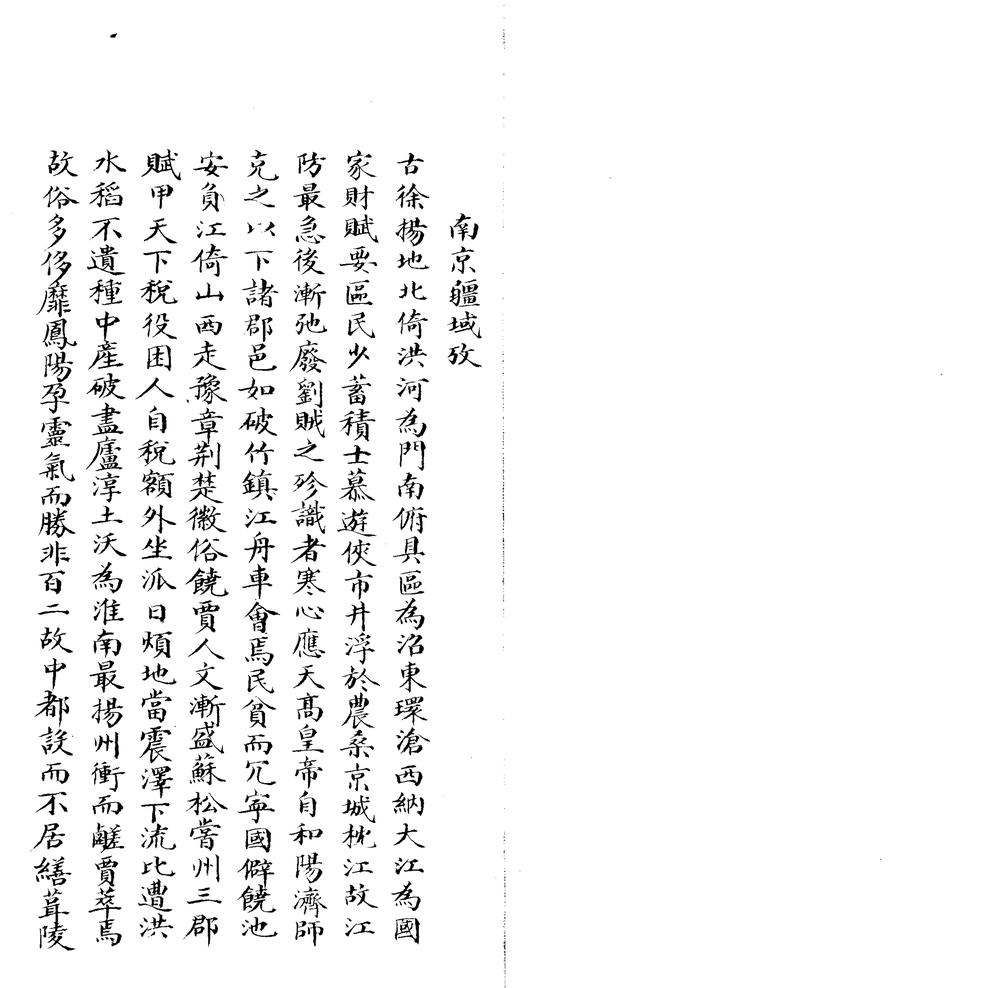 南京疆域攷
古徐揚地北倚洪河為門南俯具區為沼東環滄西納大江為國
家財賦要區民少蓄積士慕遊俠市井浮於農桑京城枕江故江
防最急後漸弛廢劉賊之殄識者寒心應天高皇帝自和陽濟師
克之以下諸郡邑如破竹鎮江舟車會焉民貧而冗寧國僻饒池
安負江倚山西走豫章荆楚徽俗饒賈人文漸盛蘇松嘗州三郡
賦甲天下稅役困人自稅額外坐派日煩地當震澤下流比遭洪
水稻不遺種中產破盡廬淳土沃為淮南最揚州衝而鹺賈萃焉
故俗多侈靡鳳陽孕靈氣而勝非百二故中都設而不居繕葺陵